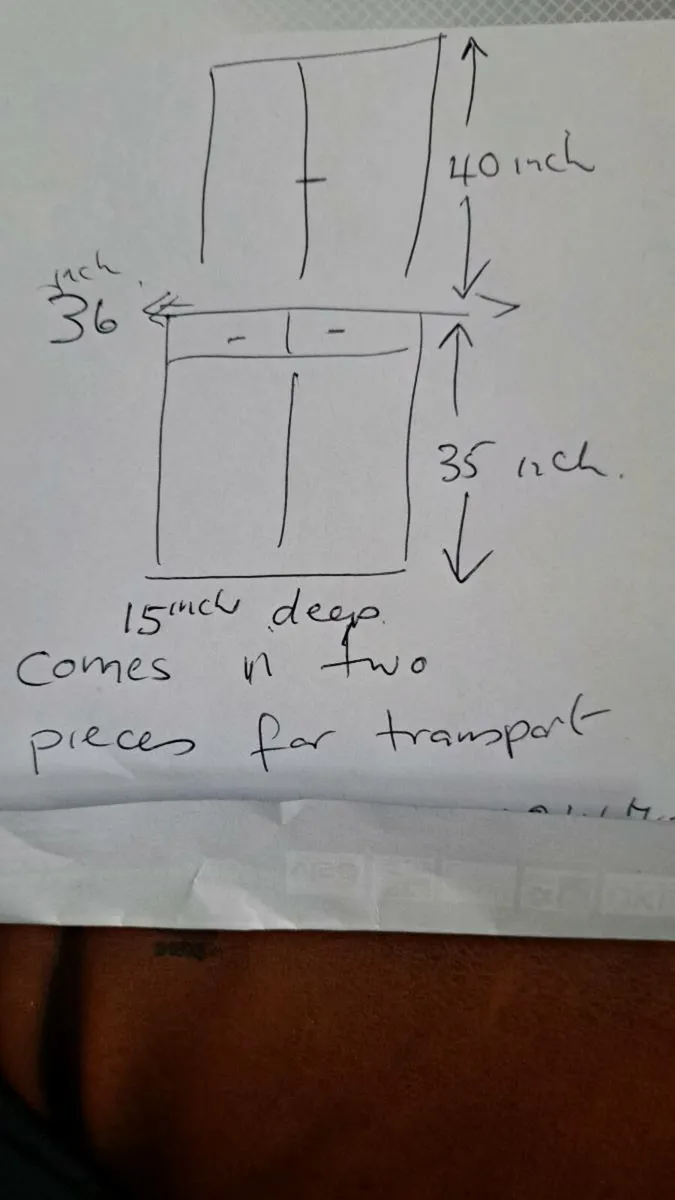 40 inch
inch
36
35 inch.
15 inch deep.
Comes in two
pieces for transport